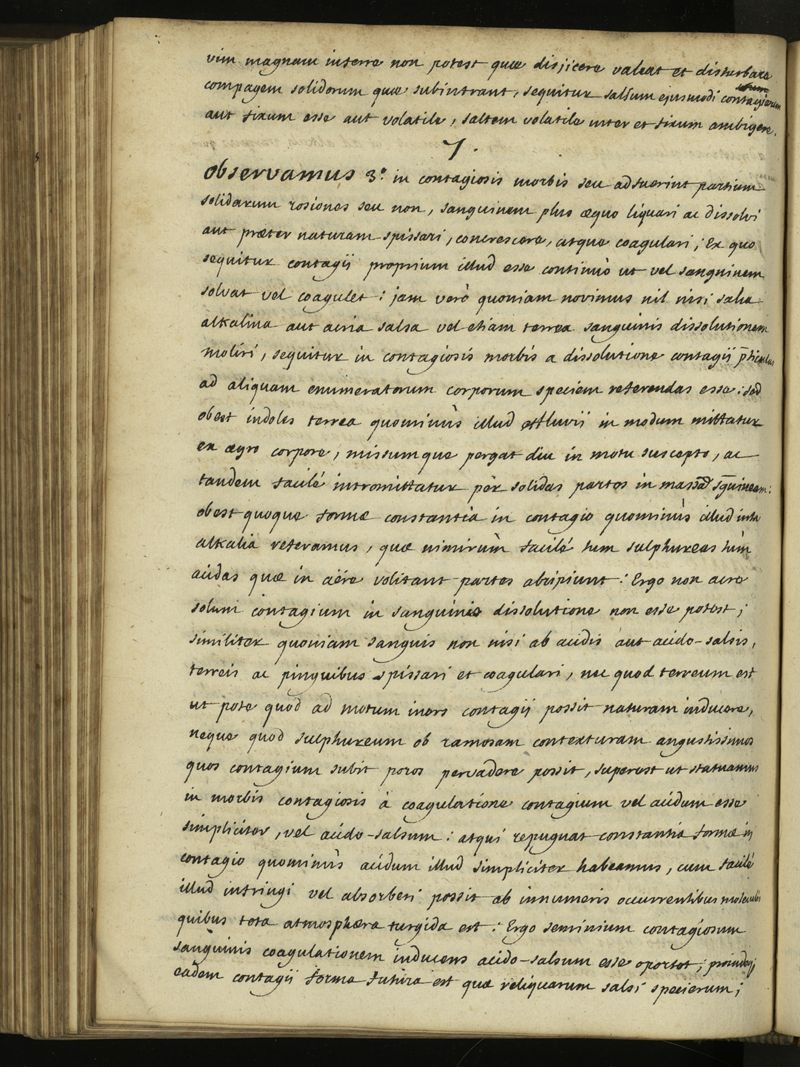 vim magnam inferre non potest quæ disjicere valeat et disturbare
compagem solidorum quæ subintrant, sequitur salsum ejusmodi contagiorum
aut fixum esse aut volatile, saltem volatile inter et fixum ambigere.
7.
Observamus 3.º in contagiosis morbis seu adfuerint partium
solidarum rosiones seu non, sanguinem plus æquo liquari ac dissolvi
aut præter naturam spissari, concrescere, atque coagulari; Ex quo
sequitur contagij proprium illud esse continuò ut vel sanguinem
solvat vel coagulet: jam verò quoniam novimus nil nisi salia
alkalina aut acria salsa vel etiam terrea sanguinis dissolutionem
moliri, sequitur in contagiosis morbis a dissolutione contagij pticulas
ad aliquam enumeratorum corporum speciem referendas esse: sed
obest indoles terrea quominùs illud effluvij in modum mittatur
ex ægro corpore, missumque pergat diu in motu suscepto, ac
tandem facilé intromittatur per solidas partes in massā sguineam:
obest quoque formæ constantia in contagio quominùs illud inter
alkalia referamus, quæ nimirùm facilé tum sulphureas tùm
acidas quæ in aëre volitant partes abripiunt: Ergo non acre
solum contagium in sanguinis dissolutione non esse potest;
similiter quoniam sanguis non nisi ab acidis aut acido-salsis,
terreis ac pinguibus spissari et coagulari, nec quod terreum est
ut pote quod ad motum iners contagij possit naturam inducere,
neque quod sulphureum ob ramosam contexturam angustissimos
quos contagium subit poros pervadere possit, superest ut statuamus
in morbis contagiosis à coagulatione contagium vel acidum esse
simpliciter, vel acido-salsum: atqui repugnat constantia formæ in
contagio quominùs acidum illud simpliciter habeamus, cum facilé
illud infringi vel absorberi possit ab innumeris occurrentibus moleculis
quibus tota atmosphæra turgida est: Ergo seminium contagiosum
sanguinis coagulationem inducens acido-salsum esse oportet;
eadem contagij forma futura est quæ reliquarum salsi specierum;